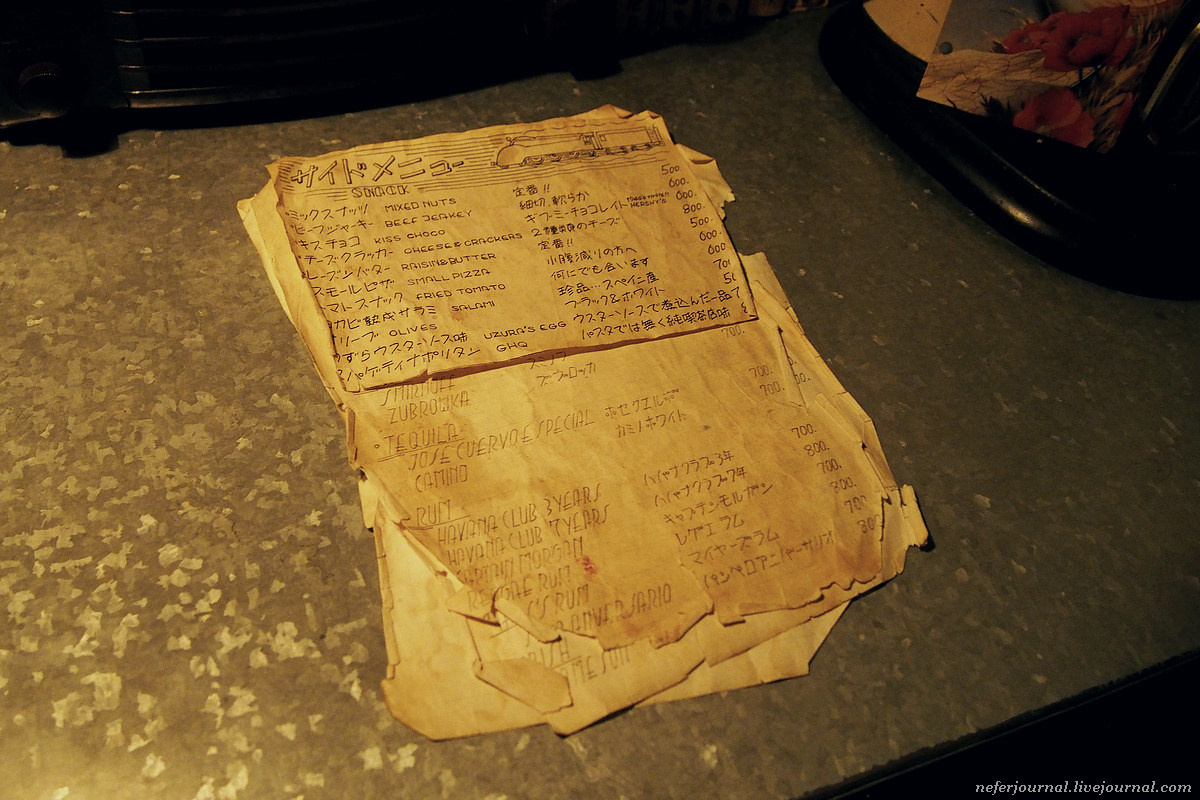 サイドメニュー
SNACK
ミックスナッツ MIXED NUTS 定番!! 500.
ビーフジャーキー BEEF JEAKEY 細切,軟らか 600.
キスチョコ KISS CHOCO ギブミーチョコレイト HERSHY'S 600.
チーズクラッカー CHEESE & CRACKERS 2種類のチーズ 800.
レーズンバター RAISIN&BUTTER 定番!! 500.
スモールピザ SMALL PIZZA 小腹減りの方へ 600.
トマトスナック FRIED TOMATO 何にでも合います 600
カビ熟成サラミ SALAMI 珍品…スペイン産 70
リーブ OLIVES ブラック&ホワイト 50
ずらウスターソース味 UZURA'S EGG ウスターソースで煮込んだ一品
スパゲティナポリタン GHQ パスタでは無く純喫茶風味
700.
SMIRNOFF
ZUBROWKA ズブロッカ
TEQUILA
JOSE CUERVO ESPECIAL ホセクエルボ 700.
CAMINO カミノホワイト 700.
RUM
HAVANA CLUB 3YEARS ハバナクラブ3年 700.
HAVANA CLUB 7YEARS ハバナクラブ7年 800.
CAPTAIN MORGAN キャプテンモルガン 700.
REGGAE RUM レゲエ ラム 800.
'S RUM マイヤーズラム 700
ANIVERSARIO パンペロアニバーサリオ 800
MESON
neferjournal.livejournal.com